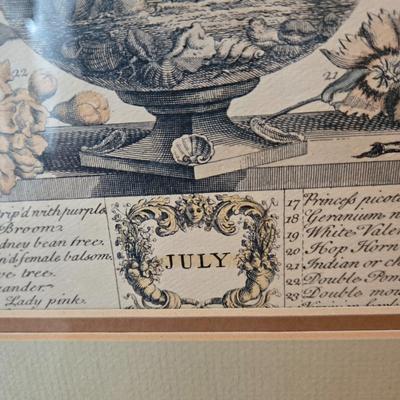 22
21
rip'd with purple
Broom
dney bean tree.
n'd female balsom
ve tree.
ander.
Lady pink.
JULY
17 Princess picote
18 Geranium n
19 White Vale
20 Hop Horn
21 Indian or ch
22 Double Pom
23 Double mou